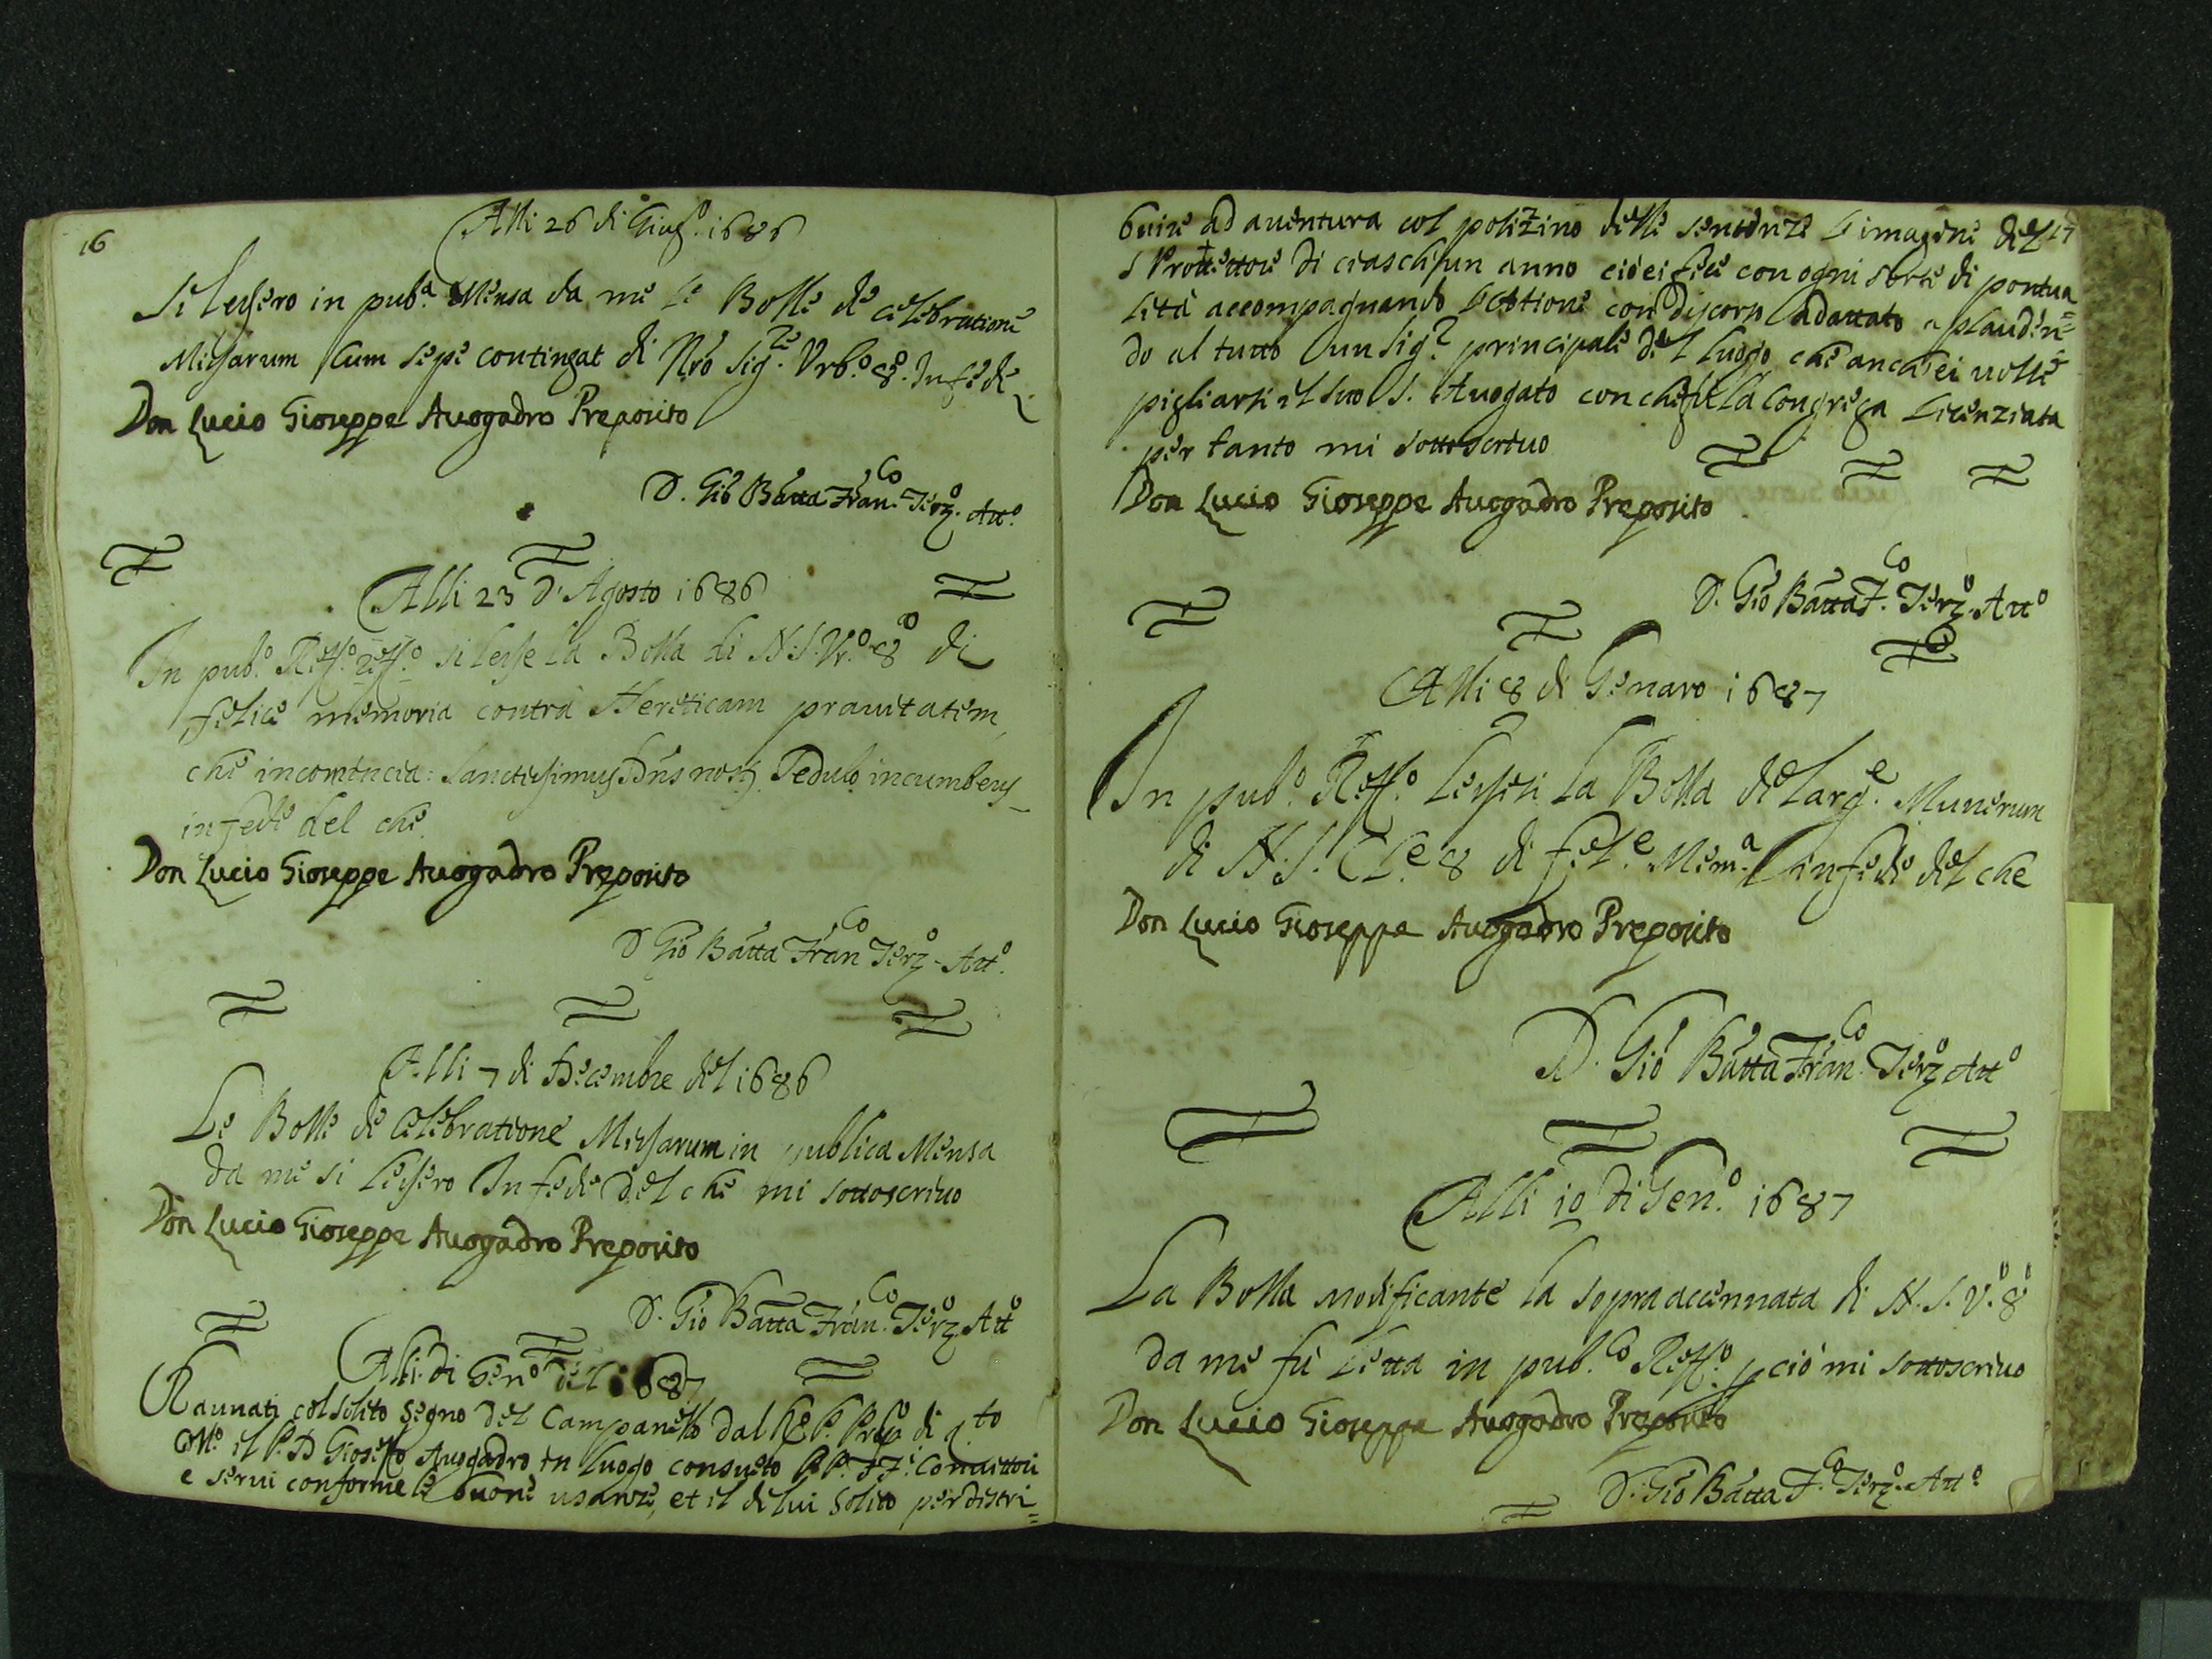 16
Alli 26 di Giug.o 1686
Si lessero in pub.a Mensa da me le Bolle de celebratione
Missarum cum sepe contingat di Nro Sig.re Vrb.o 8.o In fede
Don Lucio Gioseppe Auogadro Preposito
D. Gio Batta Fran.co Terz.o Att.o
Alli 23 d'Agosto 1686
In pub.o Reff.o si lesse la Bolla di N.S. Vr.o 8.o di
felice memoria contra Hereticam prauitatem,
che incomincia: Sanctissimus Dns nost. Sedulo incumbens
in fede del che.
Don Lucio Gioseppe Auogadro Preposito
D Gio Batta Fran.co Terz.o Att.o
Alli 7 di Decembre del 1686
Le Bolle de Celebratione Missarum in publica Mensa
da me si lessero In fede del che mi sottoscriuo
Don Lucio Gioseppe Auogadro Preposito
D. Gio Batta Fran.co Terz.o Att.o
Alli di Gen.o del 1687
Raunati col solito segno del Campanello dal P. di q.to
il P. D Gioseppo Auogadro in luogo consueto PP. FF.
e serui conforme le buone usanze, et il di lui solito per distri=
buire ad auentura col polizino delle sentenze l'imagine del 17
S Protettore di ciaschun anno ciò ei fece con ogni sorte di pontua=
lità accompagnando con discorso adattato aplauden=
do al tutto un Sig.r principale del luogo, che anch'ei uolle
pigliarsi il suo S. Auogato con che fu la Congrega licenziata
per tanto mi sottoscriuo
Don Lucio Gioseppe Auogadro Preposito
D. Gio Batta F.co Terz.o Att.o
Alli 8 di Genaro 1687
In pub.o Reff.o lessesi la Bolla de larg.e Munerum
di N.S. Cle.e 8 di fel.e Mem.a in fede del che
Don Lucio Gioseppe Auogadro Preposito
D. Gio Batta Fran.co Terz.o Att.o
Alli 10 di Gen.o 1687
La Bolla modificante la sopraaccennata di N.S. V.o 8.o
da me fù letta in pub.co Reff.o p ciò mi sottoscriuo
Don Lucio Gioseppe Auogadro Preposito
D. Gio Batta F.co Terz.o Att.o